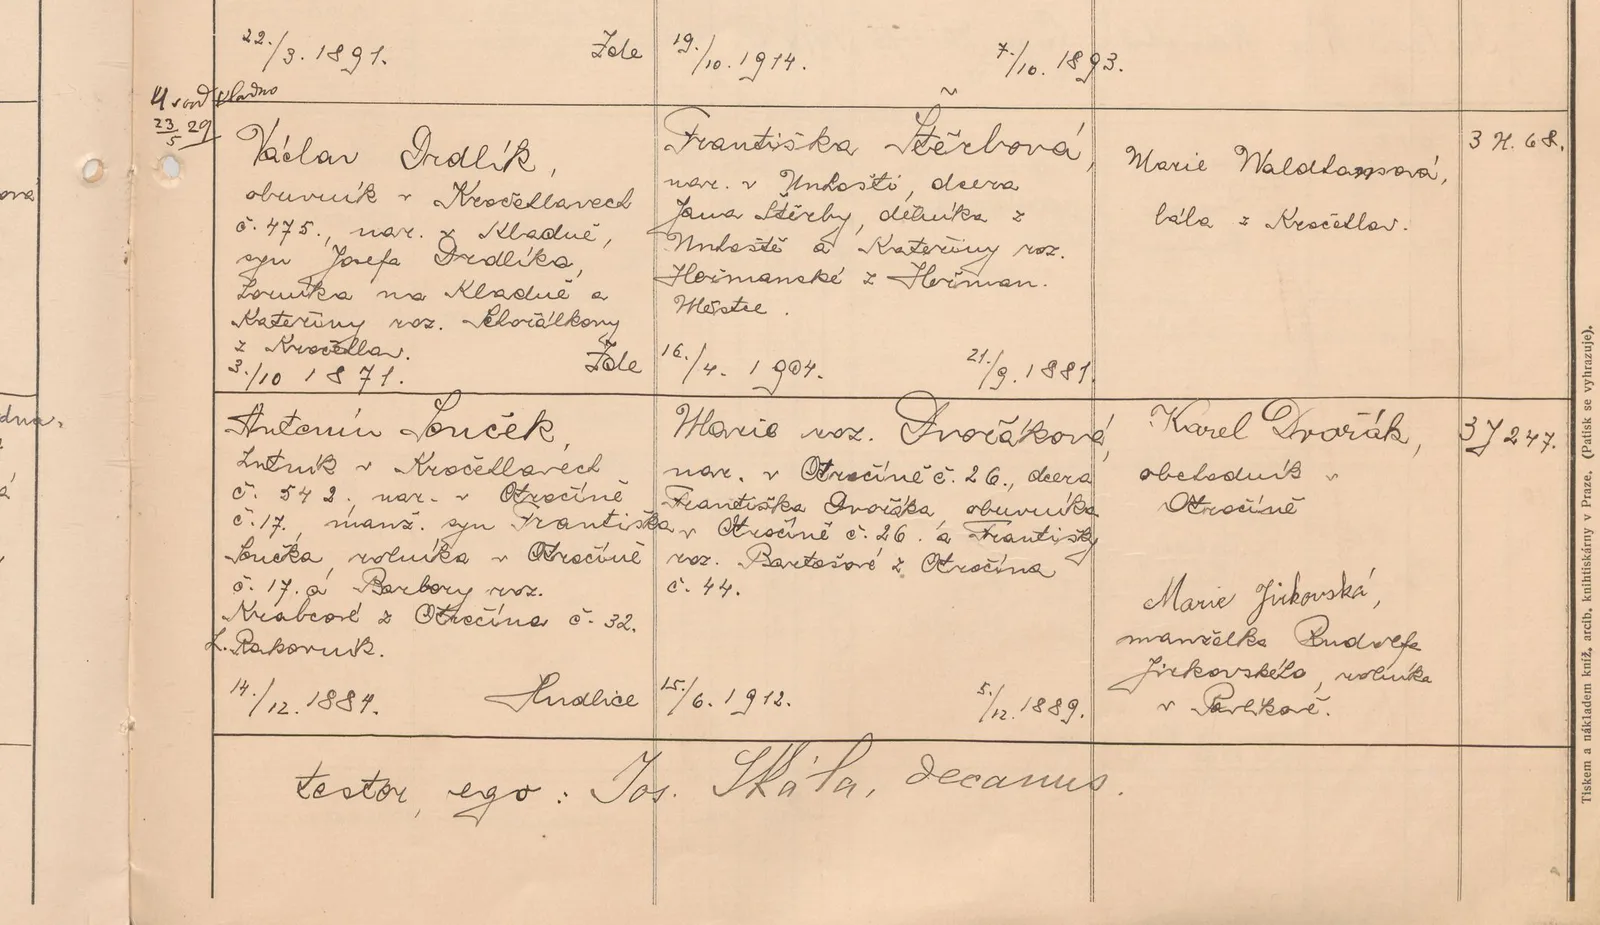 22./3. 1891. Zde
19./10. 1914. 7./10. 1893.
Kladno
23/5 29
Václav Drdlík,
obuvník v Kročehlavech
č. 475., nar. v Kladně,
syn Josefa Drdlíka,
horníka na Kladně a
Kateřiny roz. Schořálkovy
z Kročehlav.
3./10 1871. Zde
Františka Štěrbová,
nar. v Unhošti, dcera
Jana Štěrby, dělníka z
Unhoště a Kateřiny roz.
Heřmanské z Heřman.
Městce.
16./4. 1904. 21./9. 1881.
Marie
bába z Kročehlav.
3 H. 68.
Antonín Souček,
hutník v Kročehlavech
č. 542., nar. v Otročíně
č. 17., manž. syn Františka
Součka, rolníka v Otročíně
č. 17. a Barbory roz.
Krabcové z Otročína č. 32.
h. Rakovník.
14./12. 1884. Hudlice
Marie roz. Dvořáková,
nar. v Otročíně č. 26., dcera
Františka Dvořáka, obuvníka
v Otročíně č. 26. a Františky
roz. Bartošové z Otročína
č. 44.
15./6. 1912. 5./12. 1889.
Karel Dvořák,
obchodník v
Otročíně
Marie Jirkovská,
manželka Rudolfa
Jirkovského, rolníka
v Pavlíkově.
3 J 247.
testor, ego: Jos. Skála, decanus.
Tiskem a nákladem kníž. arcib. knihtiskárny v Praze. (Patisk se vyhrazuje).